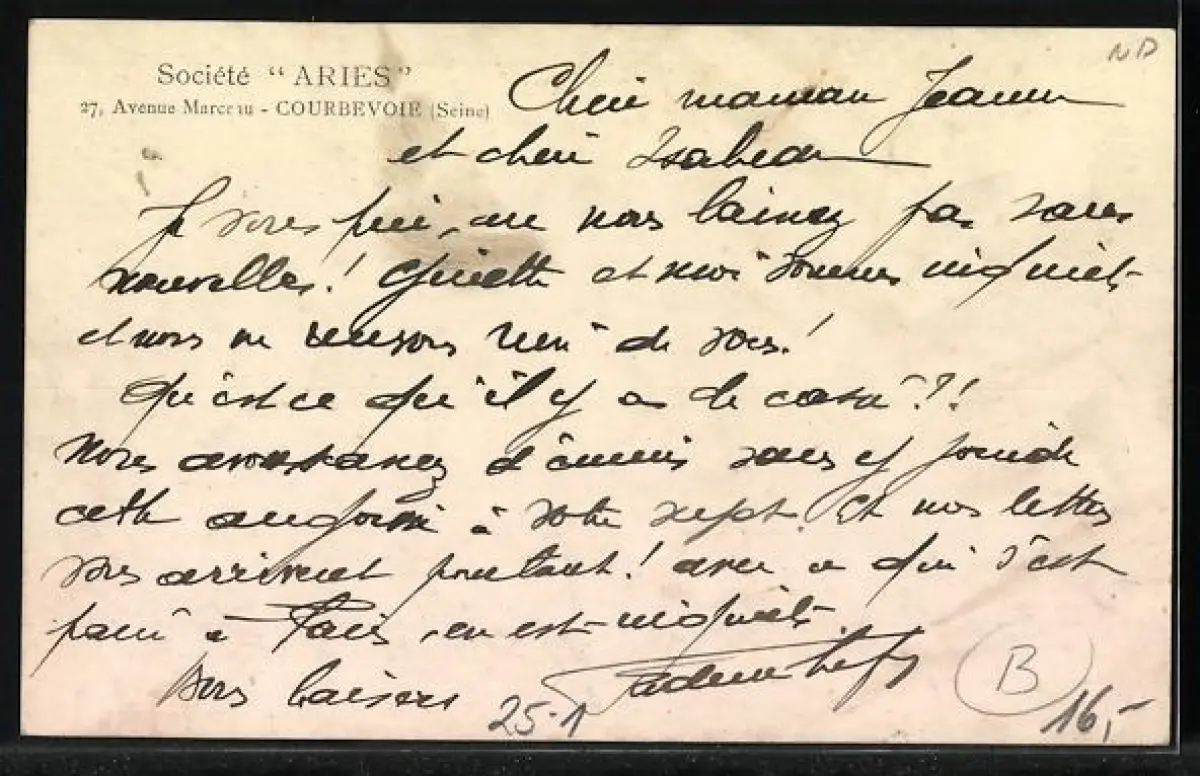 ND
Société "ARIES"
27, Avenue Marceau - COURBEVOIE (Seine)
Cheri maman Jeanne
et cheri Isabeau
Je vous prie, ne nous laissez pas sans
nouvelles! et moi sommes inquiets
et nous ne rien de vous!
Qu'est ce qu'il y a de cassé?!
Nous assez d'ennuis sans y joindre
cette angoisse à votre sujet. Et nos lettres
vous arrivent pourtant! avec ce qui s'est
passé à Paris, on est inquiets.
Bons baisers
25-1
B
16,-